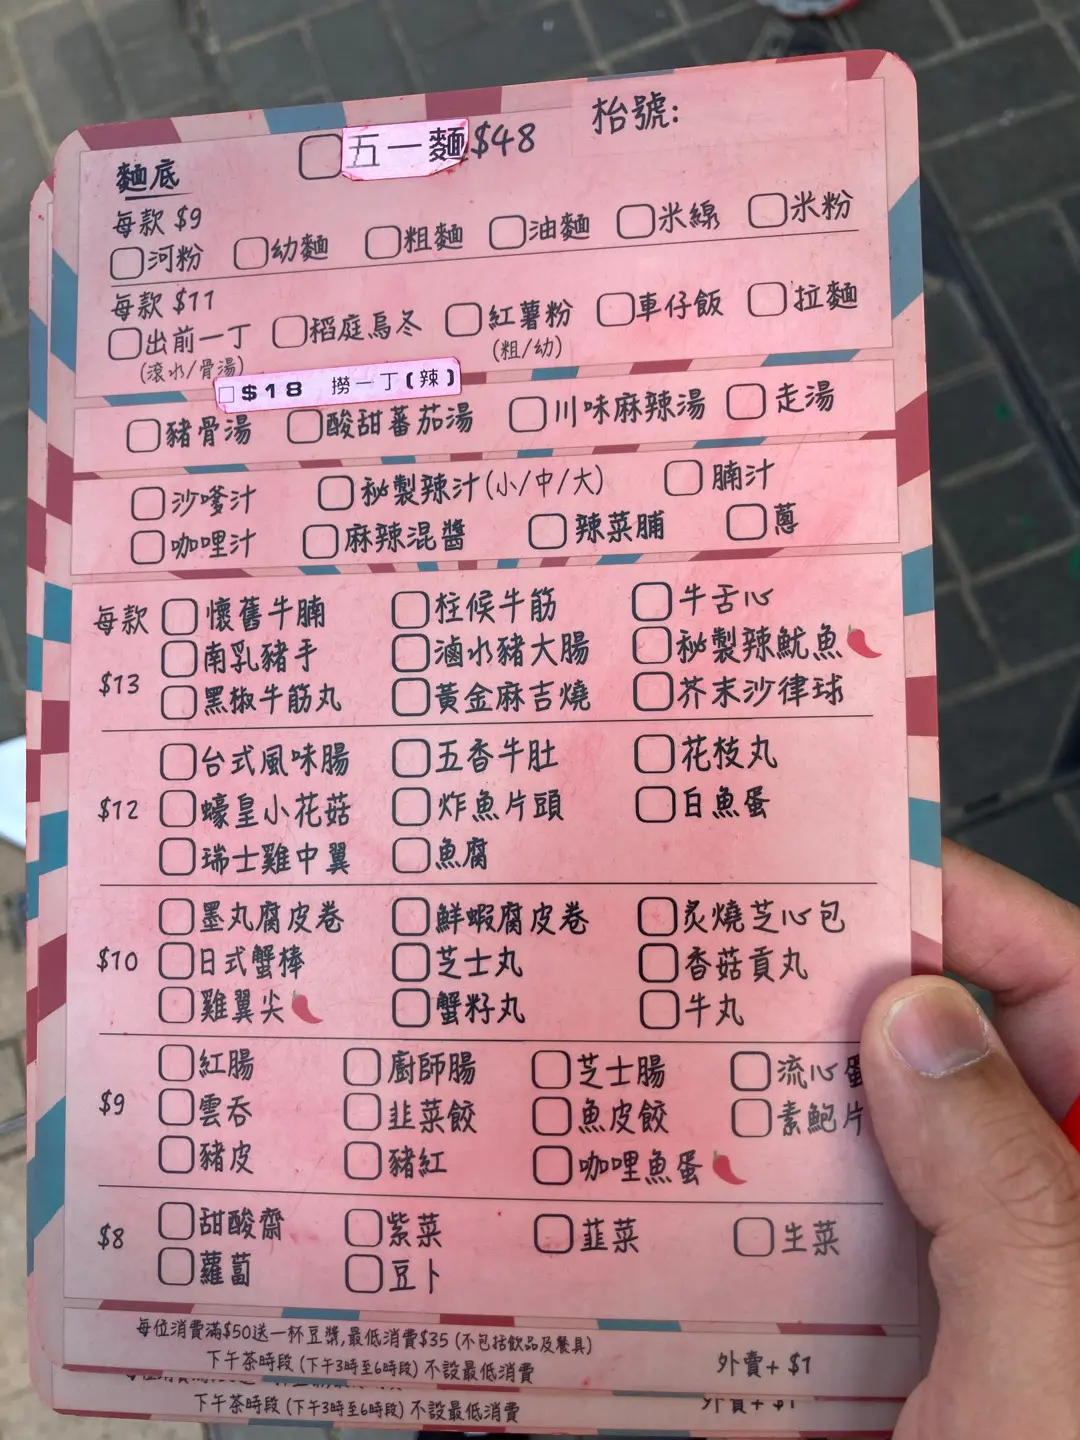 枱號:
五一麵$48
麵底
每款 $9
河粉 幼麵 粗麵 油麵 米線 米粉
每款 $11
出前一丁 稻庭烏冬 紅薯粉 車仔飯 拉麵
(滾水/骨湯) (粗/幼)
$18 撈一丁(辣)
豬骨湯 酸甜蕃茄湯 川味麻辣湯 走湯
沙嗲汁 秘製辣汁(小/中/大) 腩汁
咖哩汁 麻辣混醬 辣菜脯 蔥
每款 懷舊牛腩 柱候牛筋 牛舌心
$13 南乳豬手 滷水豬大腸 秘製辣魷魚
黑椒牛筋丸 黃金麻吉燒 芥末沙律球
台式風味腸 五香牛肚 花枝丸
$12 蠔皇小花菇 炸魚片頭 白魚蛋
瑞士雞中翼 魚腐
墨丸腐皮卷 鮮蝦腐皮卷 炙燒芝心包
$10 日式蟹棒 芝士丸 香菇貢丸
雞翼尖 蟹籽丸 牛丸
紅腸 廚師腸 芝士腸 流心蛋
$9 雲吞 韭菜餃 魚皮餃 素鮑片
豬皮 豬紅 咖哩魚蛋
$8 甜酸齋 紫菜 韮菜 生菜
蘿蔔 豆卜
每位消費滿$50送一杯豆漿,最低消費$35 (不包括飲品及餐具)
下午茶時段 (下午3時至6時段) 不設最低消費 外賣+ $1
下午茶時段 (下午3時至6時段) 不設最低消費 外賣+ $1